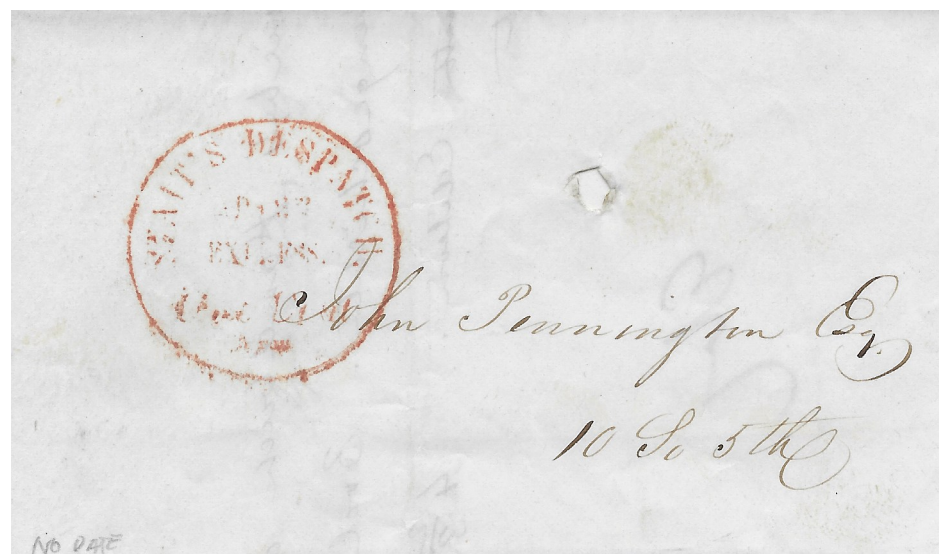 STAIT'S DESPATCH
EXPRESS.
John Pennington Esq.
10 So 5th
NO DATE